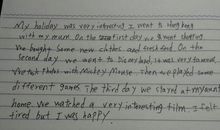 My holiday was very interesting I went to Hong Kong
with my mum. On the first day we went shopping
We bought some new clothes and fresh food On the
second day we went to Disneyland, it was very funny and
We took Photos with Mickey Mouse. Then we played some
different games The third day we stayed at my aunt
home. We watched a very interesting film. I felt
tired but I was happy.